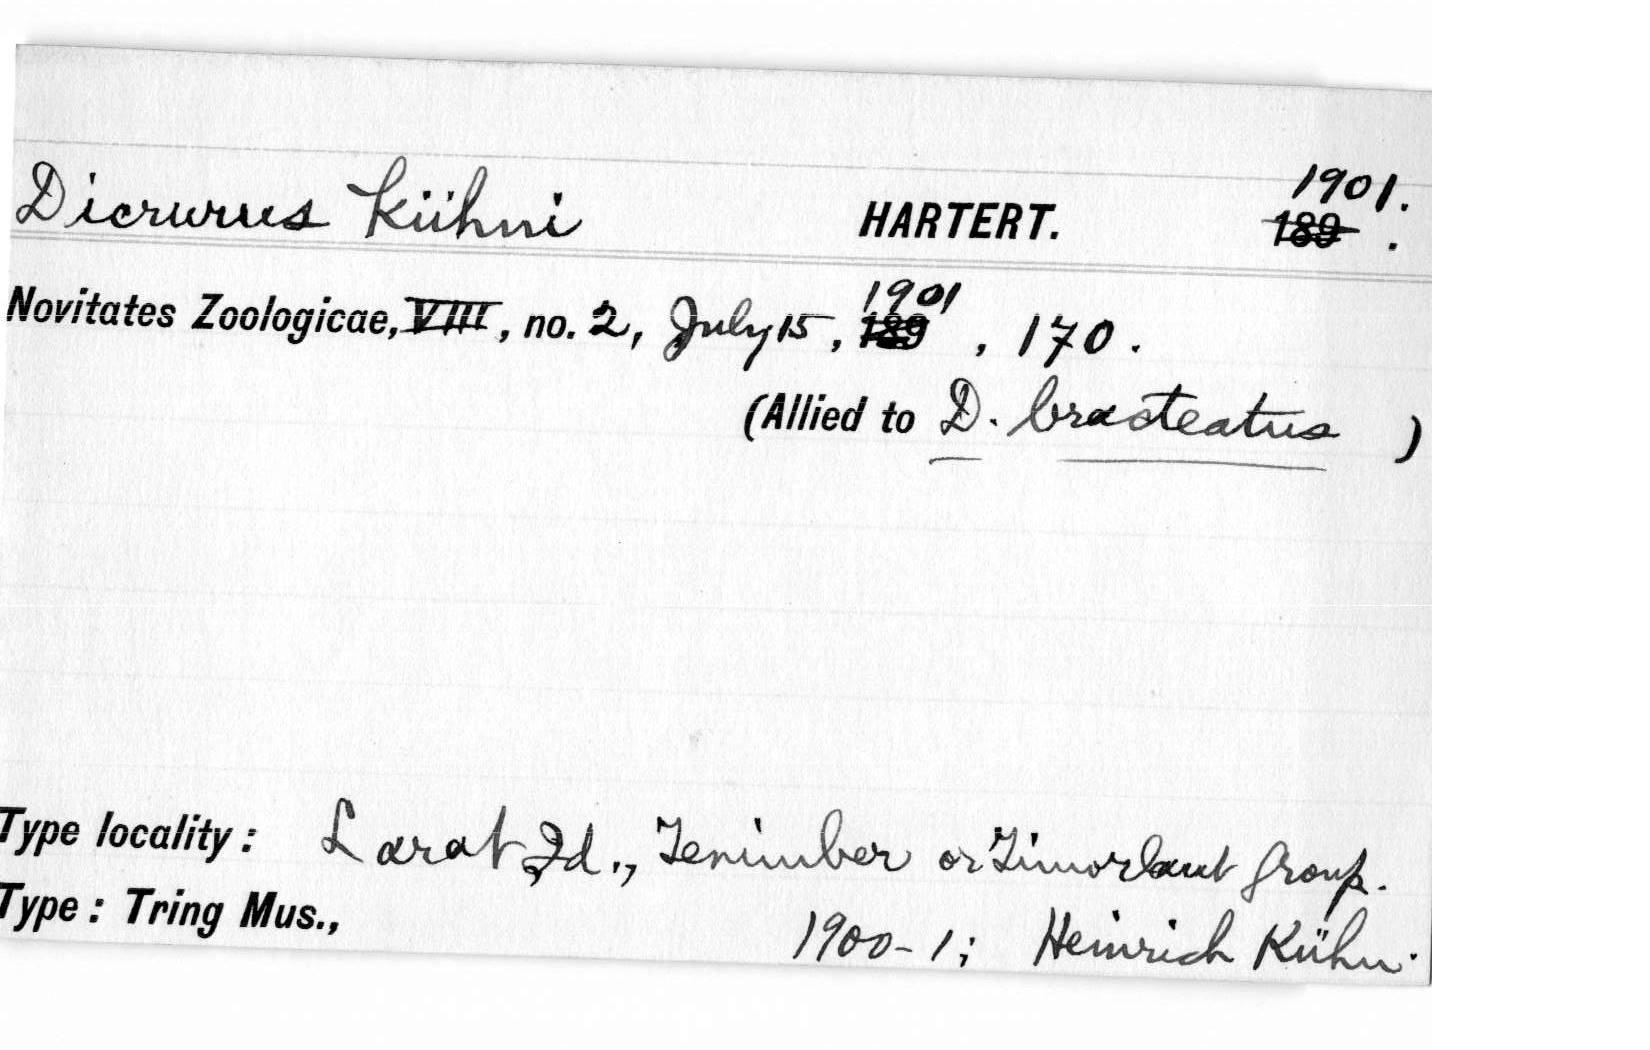 Dicrurus Kühni HARTERT. 1901.
189 .
Novitates Zoologicae, VIII, no. 2, July 15, 189 1901, 170.
(Allied to D. bracteatus )
Type locality: Larat Id., Tenimber or Timorlaut Group.
Type: Tring Mus., 1900-1; Heinrich Kühn.